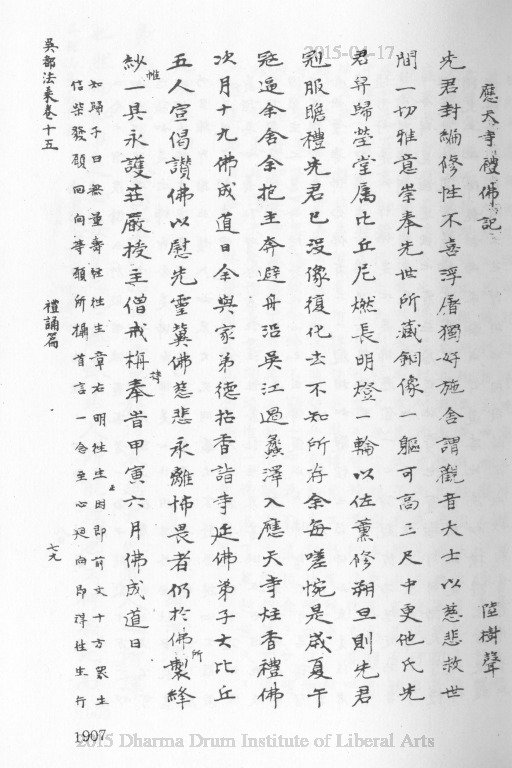 2015-04-17
應天寺禮佛記
陸樹聲
先君封編修性不喜浮屠獨好施舍謂觀音大士以慈悲救世
間一切雅意崇奉先世所藏銅像一軀可高三尺中更他氏先
君舁歸塋堂屬比丘尼燃長明燈一輪以佐薰修朔旦則先君
冠服瞻禮先君已沒像復化去不知所存余每嗟惋是歲夏午
寇逼余舍余抱主奔避舟沿吳江過蠡澤入應天寺炷香禮佛
次月十九佛成道日余與家弟德拈香詣寺延佛弟子大比丘
五人宣偈讚佛以慰先靈冀佛慈悲永離怖畏者仍於佛所製絳
紗帷一具永護莊嚴授主僧戒栴擇奉峕甲寅六月佛成道日
知歸子曰無量壽往生章右明往生因即前文十方眾生
信樂發願回向等願所攝首言一念至心迴向即得往生行
吳都法乘卷十五
禮誦篇
七九
1907
2015 Dharma Drum Institute of Liberal Arts